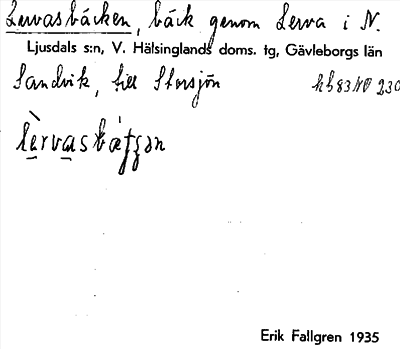 Lervasbäcken, bäck genom Lerva i N.
Ljusdals s:n, V. Hälsinglands doms. tg, Gävleborgs län
Sandvik, till Storsjön
Erik Fallgren 1935